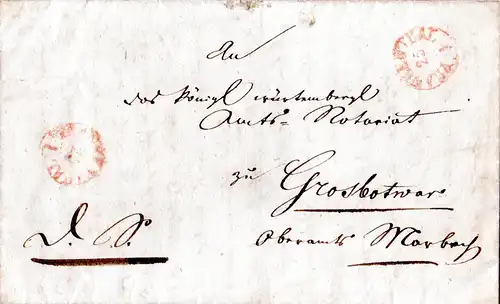 An
das königl. würtembergl
Amts= Notariat
zu
Grosbotwar
Oberamts Marbach
d. S.